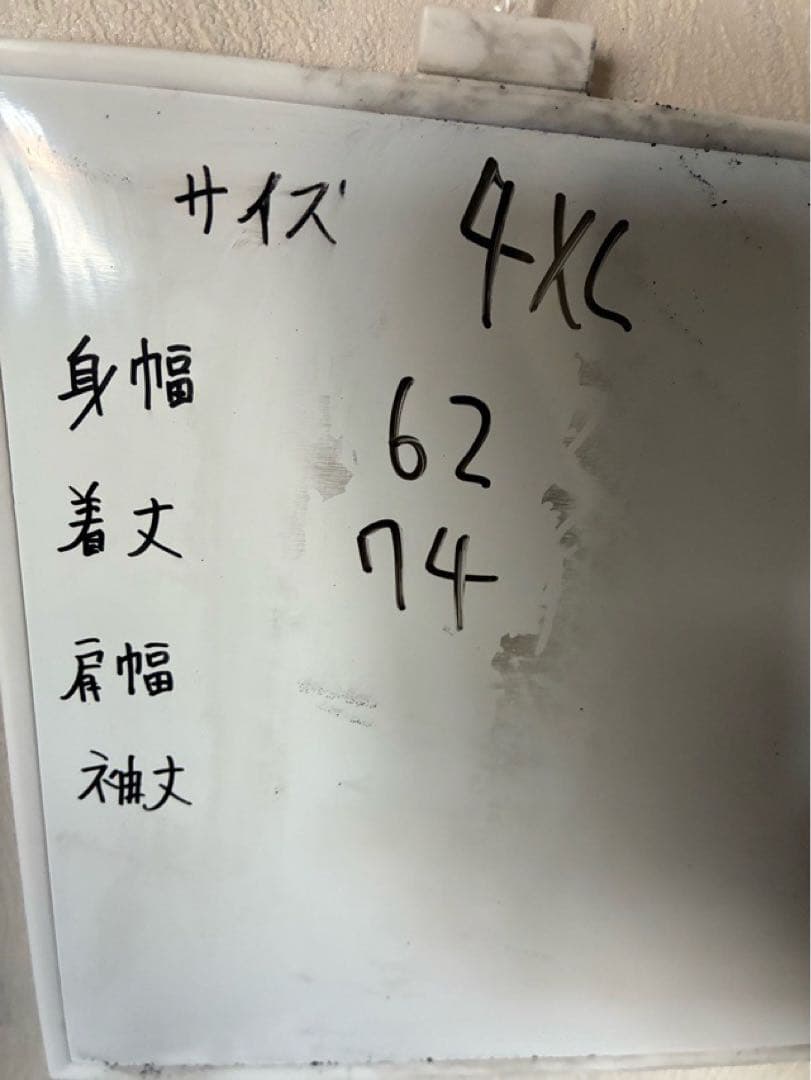 サイズ 4XL
身幅 62
着丈 74
肩幅
袖丈